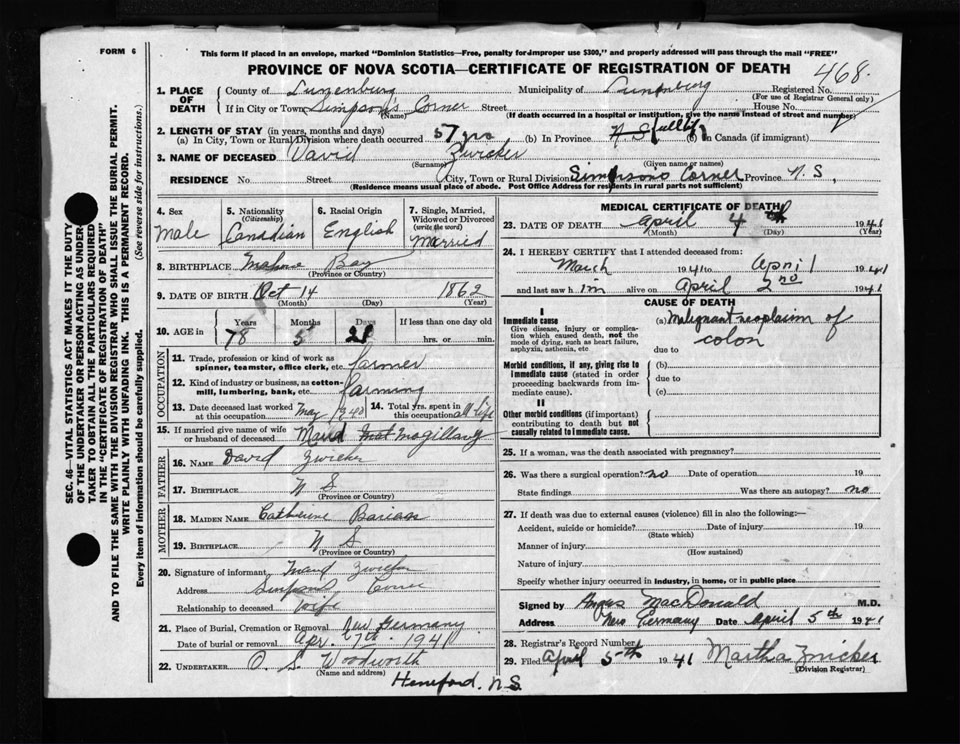 FORM 6
This form if placed in an envelope, marked "Dominion Statistics—Free, penalty for improper use $300," and properly addressed will pass through the mail "FREE"
PROVINCE OF NOVA SCOTIA—CERTIFICATE OF REGISTRATION OF DEATH 468.
1. PLACE OF DEATH
County of Lunenburg Municipality of Lunenburg Registered No.
(For use of Registrar General only)
If in City or Town Simpson's Corner Street House No.
(Name) (If death occurred in a hospital or institution, give the name instead of street and number)
2. LENGTH OF STAY (in years, months and days)
(a) In City, Town or Rural Division where death occurred 57 yrs (b) In Province N S (c) In Canada (if immigrant)
3. NAME OF DECEASED David Zwicker
(Surname) (Given name or names)
RESIDENCE No. Street City, Town or Rural Division Simpsons Corner Province N. S.
(Residence means usual place of abode. Post Office Address for residents in rural parts not sufficient)
4. Sex Male
5. Nationality (Citizenship) Canadian
6. Racial Origin English
7. Single, Married, Widowed or Divorced (write the word) Married
8. BIRTHPLACE Mahone Bay
(Province or Country)
9. DATE OF BIRTH Oct 14 1862
(Month) (Day) (Year)
10. AGE in Years Months Days If less than one day old
78 5 21 hrs. or min.
OCCUPATION
11. Trade, profession or kind of work as spinner, teamster, office clerk, etc. farmer
12. Kind of industry or business, as cotton-mill, lumbering, bank, etc. farming
13. Date deceased last worked at this occupation May 1940
14. Total yrs. spent in this occupation all life
15. If married give name of wife or husband of deceased Maud
FATHER
16. NAME David Zwicker
17. BIRTHPLACE N S
(Province or Country)
MOTHER
18. MAIDEN NAME Catherine
19. BIRTHPLACE N S
(Province or Country)
20. Signature of informant Maud Zwicker
Address Simpsons Corner
Relationship to deceased wife
21. Place of Burial, Cremation or Removal New Germany
Date of burial or removal Apr. 7th. 1941
22. UNDERTAKER O. S. Woodworth
(Name and address)
N.S.
MEDICAL CERTIFICATE OF DEATH
23. DATE OF DEATH April 4th 1941
(Month) (Day) (Year)
24. I HEREBY CERTIFY that I attended deceased from:
March 1941 to April 1941
and last saw him alive on April 2nd 1941
CAUSE OF DEATH
I
Immediate cause
Give disease, injury or complication which caused death, not the mode of dying, such as heart failure, asphyxia, asthenia, etc
(a) Malignant neoplasim of colon
due to
Morbid conditions, if any, giving rise to immediate cause (stated in order proceeding backwards from immediate cause).
(b)
due to
(c)
II
Other morbid conditions (if important) contributing to death but not causally related to immediate cause.
25. If a woman, was the death associated with pregnancy?
26. Was there a surgical operation? no Date of operation 19
State findings Was there an autopsy? no
27. If death was due to external causes (violence) fill in also the following:—
Accident, suicide or homicide? Date of injury 19
(State which)
Manner of injury
(How sustained)
Nature of injury
Specify whether injury occurred in industry, in home, or in public place
Signed by Angus MacDonald M.D.
Address New Germany Date April 5th 1941
28. Registrar's Record Number
29. Filed April 5th 1941 Martha Zwicker
(Division Registrar)
SEC. 46—VITAL STATISTICS ACT MAKES IT THE DUTY
OF THE UNDERTAKER OR PERSON ACTING AS UNDERTAKER
TO OBTAIN ALL THE PARTICULARS REQUIRED
IN THE "CERTIFICATE OF REGISTRATION OF DEATH"
AND TO FILE THE SAME WITH THE DIVISION REGISTRAR WHO SHALL ISSUE THE BURIAL PERMIT.
WRITE PLAINLY WITH UNFADING INK. THIS IS A PERMANENT RECORD.
Every item of information should be carefully supplied. (See reverse side for instructions.)